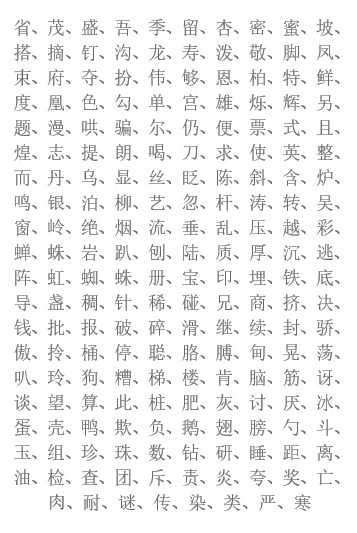 省、茂、盛、吾、季、留、杏、密、蜜、坡、
搭、摘、钉、沟、龙、寿、泼、敬、脚、凤、
束、府、夺、扮、伟、够、恩、柏、特、鲜、
度、凰、色、勾、单、宫、雄、烁、辉、另、
题、漫、哄、骗、尔、仍、便、票、式、且、
煌、志、提、朗、喝、刀、求、使、英、整、
而、丹、乌、显、丝、眨、陈、斜、含、炉、
鸣、银、泊、柳、艺、忽、杆、涛、转、吴、
窗、岭、绝、烟、流、垂、乱、压、越、彩、
蝉、蛛、岩、趴、刨、陆、质、厚、沉、逃、
阵、虹、蜘、蛛、册、宝、印、埋、铁、底、
导、盏、稠、针、稀、碰、兄、商、挤、决、
钱、批、报、破、碎、滑、继、续、封、骄、
傲、拎、桶、停、聪、胳、膊、甸、晃、荡、
叭、玲、狗、糟、梯、楼、肯、脑、筋、讶、
谈、望、算、此、桩、肥、灰、讨、厌、冰、
蛋、壳、鸭、欺、负、鹅、翅、膀、勺、斗、
玉、组、珍、珠、数、钻、研、睡、距、离、
油、检、查、团、斥、责、炎、夸、奖、亡、
肉、耐、谜、传、染、类、严、寒